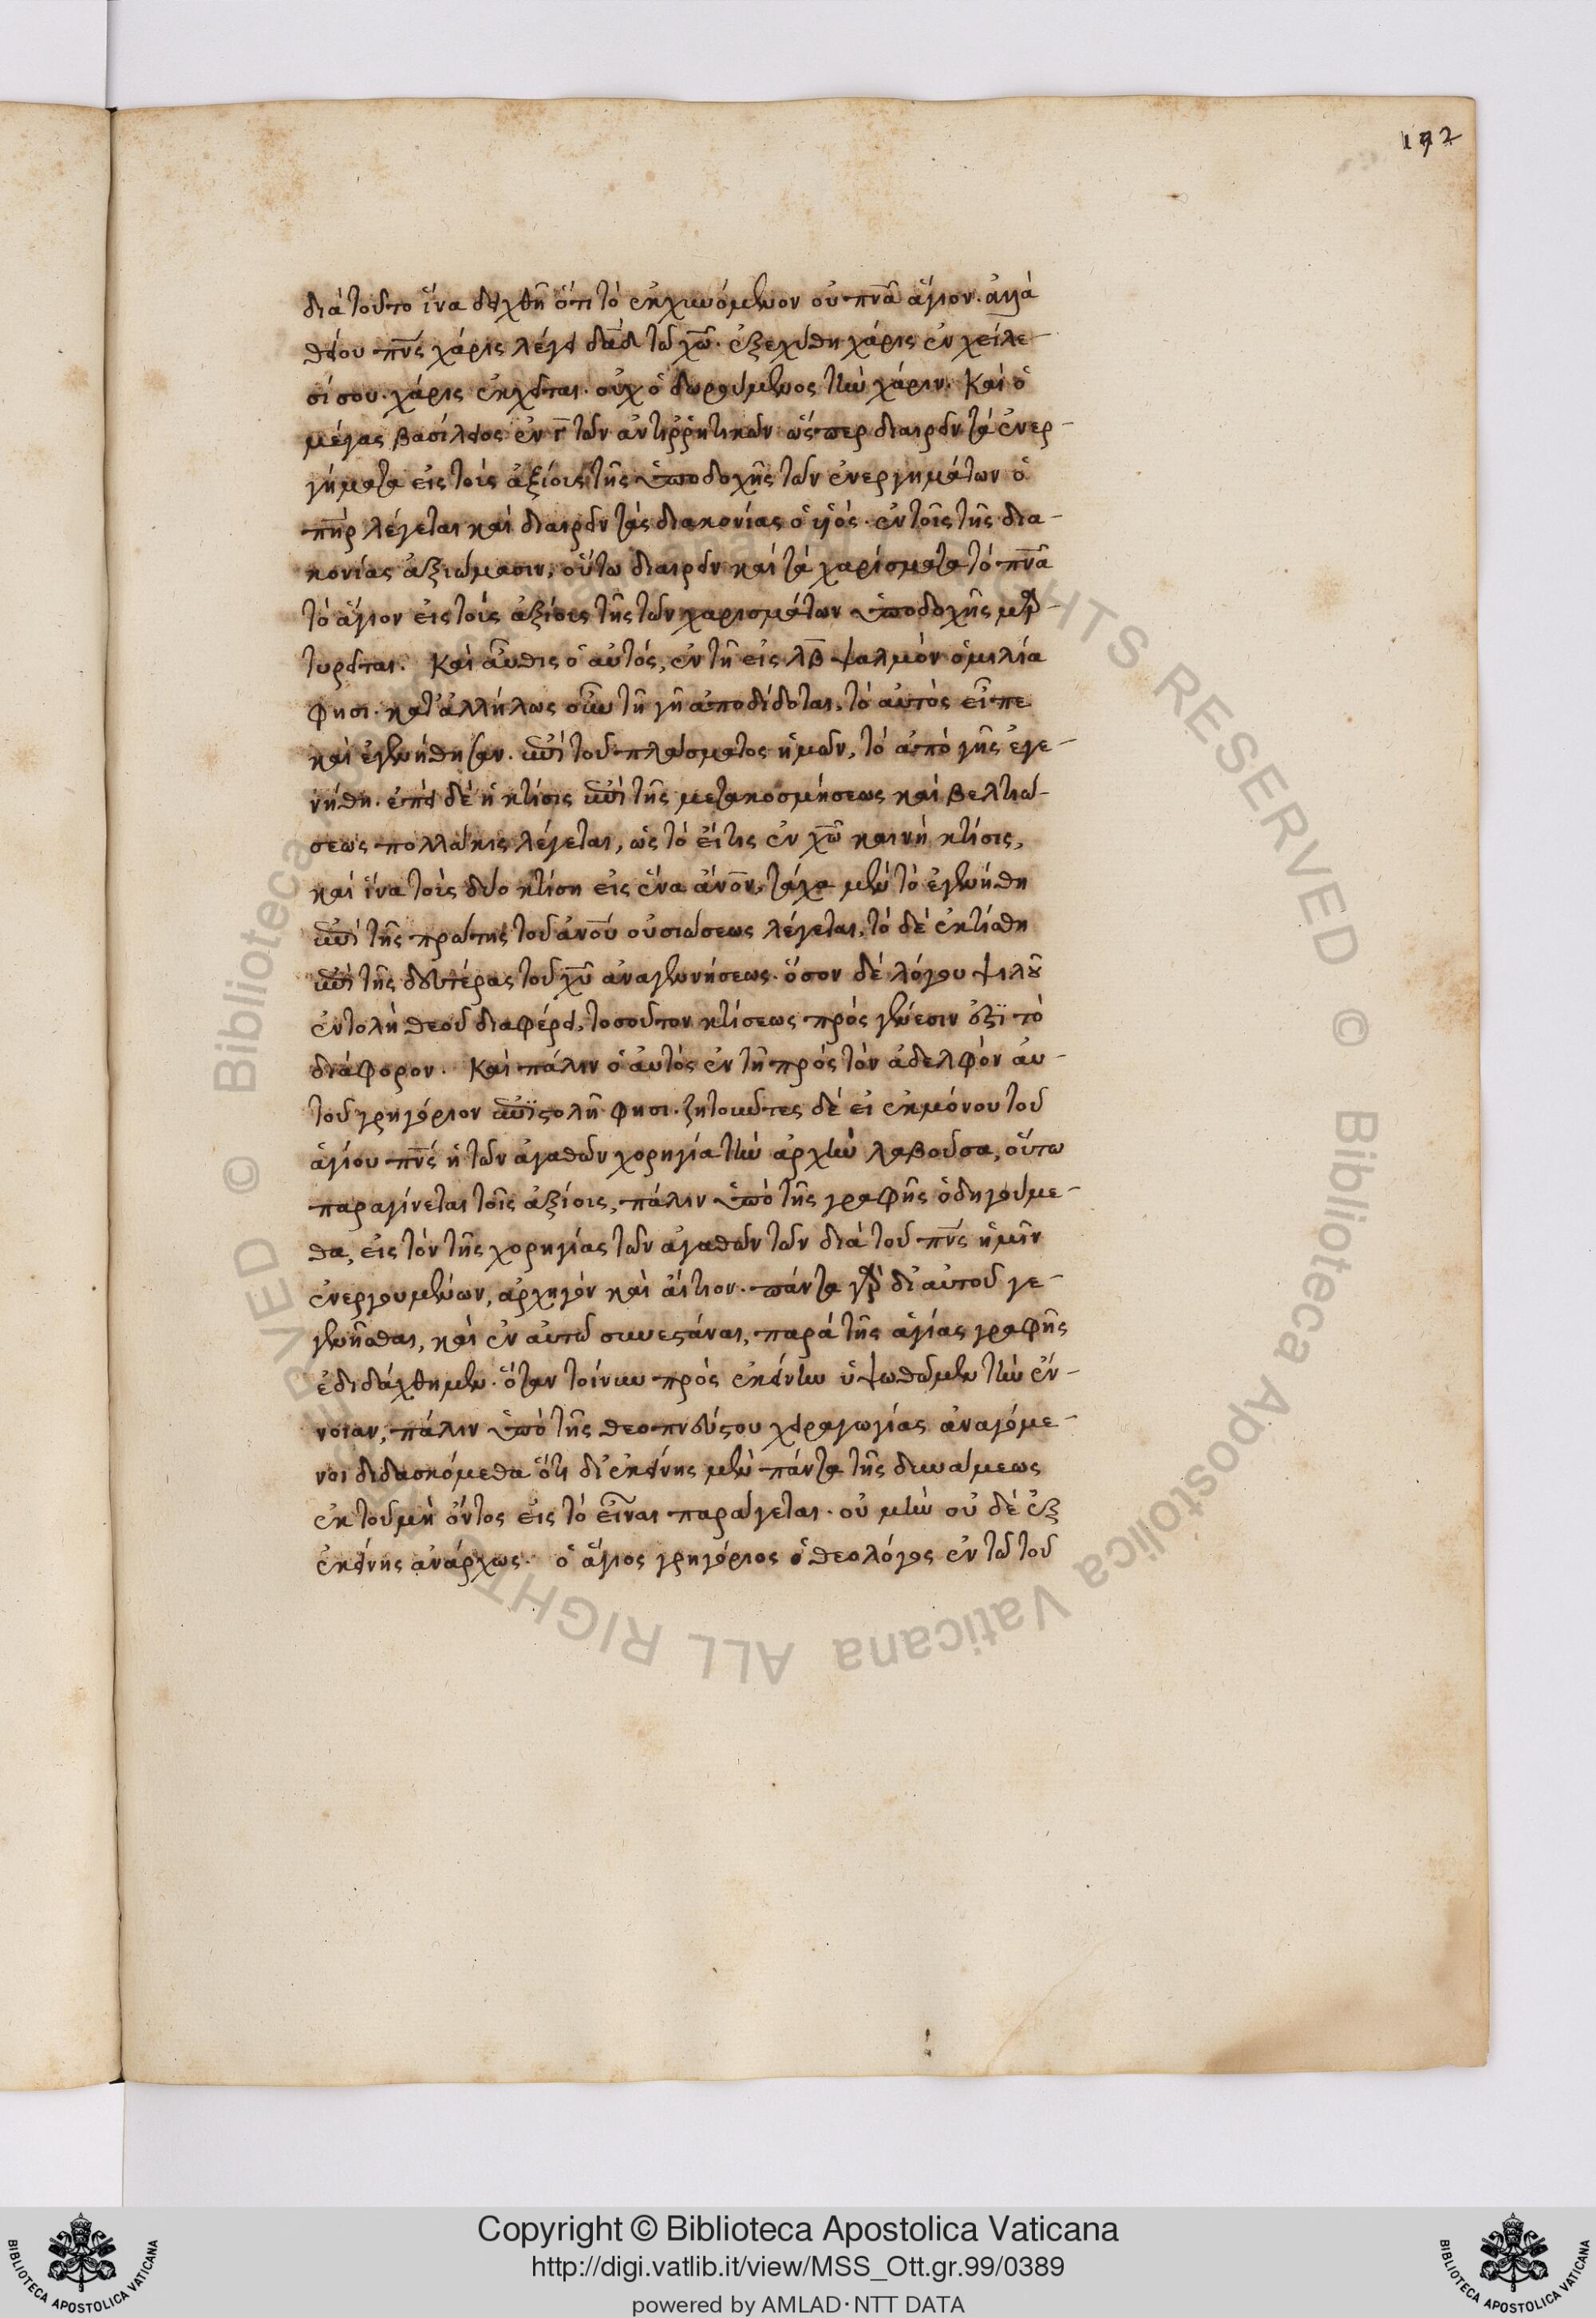 192
διὰ τοῦτο ἵνα δειχθῆ ὅτι τὸ ἐκχυνόμενον οὐ πνᾶ ἅγιον. ἀλλὰ
θείου πνς χάρις λέγει δαδ τῶ χῶ. ἐξεχύθη χάρις ἐν χείλε-
σί σου. χάρις ἐκχεῖται. οὐχ ὁ δωρούμενος τὴν χάριν. Καὶ ὁ
μέγας βασίλειος ἐν γ τῶν ἀντιῤῥητικῶν ὥσπερ διαιρεῖν τὰ ἐνερ-
γήματα εἰς τοὺς ἀξίους τῆς ὑποδοχῆς τῶν ἐνεργημάτων ὁ
πηρ λέγεται καὶ διαιρεῖν τὰς διακονίας ὁ υἱός. ἐν τοῖς τῆς δια-
κονίας ἀξιώμασιν, οὕτω διαιρεῖν καὶ τὰ χαρίσματα τὸ πνᾶ
τὸ ἅγιον εἰς τοὺς ἀξίους τῆς τῶν χαρισμάτων ὑποδοχῆς μαρ
τυρεῖται. Καὶ αὖθις ὁ αὐτὸς, ἐν τῆ εἰς λβ ψαλμὸν ὁμιλία
φησι. καταλλήλως οὖν τῆ γῆ ἀποδίδοται, τὸ αὐτὸς εἶπε
καὶ ἐγενήθησαν. ἐπὶ τοῦ πλάσματος ἡμῶν, τὸ ἀπὸ γῆς ἐγε-
νήθη. ἐπεὶ δὲ ἡ κτίσις ἐπὶ τῆς μετακοσμήσεως καὶ βελτιώ-
σεως πολλάκις λέγεται, ὡς τὸ εἴ τις ἐν χῶ καινὴ κτίσις,
καὶ ἵνα τοὺς δύο κτίση εἰς ἕνα ἄνον, τάχα μὲν τὸ ἐγενήθη
ἐπὶ τῆς πρώτης τοῦ ἀνου οὐσιώσεως λέγεται, τὸ δὲ ἐκτίσθη
ἐπὶ τῆς δευτέρας τοῦ χῦ ἀναγεννήσεως. ὅσον δὲ λόγου ψιλοῦ
ἐντολὴ θεοῦ διαφέρει, τοσοῦτον κτίσεως πρὸς γένεσιν ἐξὶ τὸ
διάφορον. Καὶ πάλιν ὁ αὐτὸς ἐν τῆ πρὸς τὸν ἀδελφὸν αὐ-
τοῦ γρηγόριον ἐπιστολῆ φησι. ζητοῦντες δὲ εἰ ἐκ μόνου τοῦ
ἁγίου πνς ἡ τῶν ἀγαθῶν χορηγία τὴν ἀρχὴν λαβοῦσα, οὕτω
παραγίνεται τοῖς ἀξίοις, πάλιν ὑπὸ τῆς γραφῆς ὁδηγούμε-
θα, εἰς τὸν τῆς χορηγίας τῶν ἀγαθῶν τῶν διὰ τοῦ πνς ἡμῖν
ἐνεργουμένων, ἀρχηγὸν καὶ αἴτιον. πάντα γὰρ δι' αὐτοῦ γε-
γενῆσθαι, καὶ ἐν αὐτῶ συνεστάναι, παρὰ τῆς ἁγίας γραφῆς
ἐδιδάχθημεν. ὅταν τοίνυν πρὸς ἐκείνην ὑψωθῶμεν τὴν ἔν-
νοιαν, πάλιν ὑπὸ τῆς θεοπνεύστου χειραγωγίας ἀναγόμε-
νοι διδασκόμεθα ὅτι δι' ἐκείνης μὲν πάντα τῆς δυνάμεως
ἐκ τοῦ μὴ ὄντος εἰς τὸ εἶναι παράγεται. οὐ μὴν οὐδὲ ἐξ
ἐκείνης ἀνάρχως. ὁ ἅγιος γρηγόριος ὁ θεολόγος ἐν τῶ τοῦ
Copyright © Biblioteca Apostolica Vaticana
http://digi.vatlib.it/view/MSS_Ott.gr.99/0389
powered by AMLAD·NTT DATA